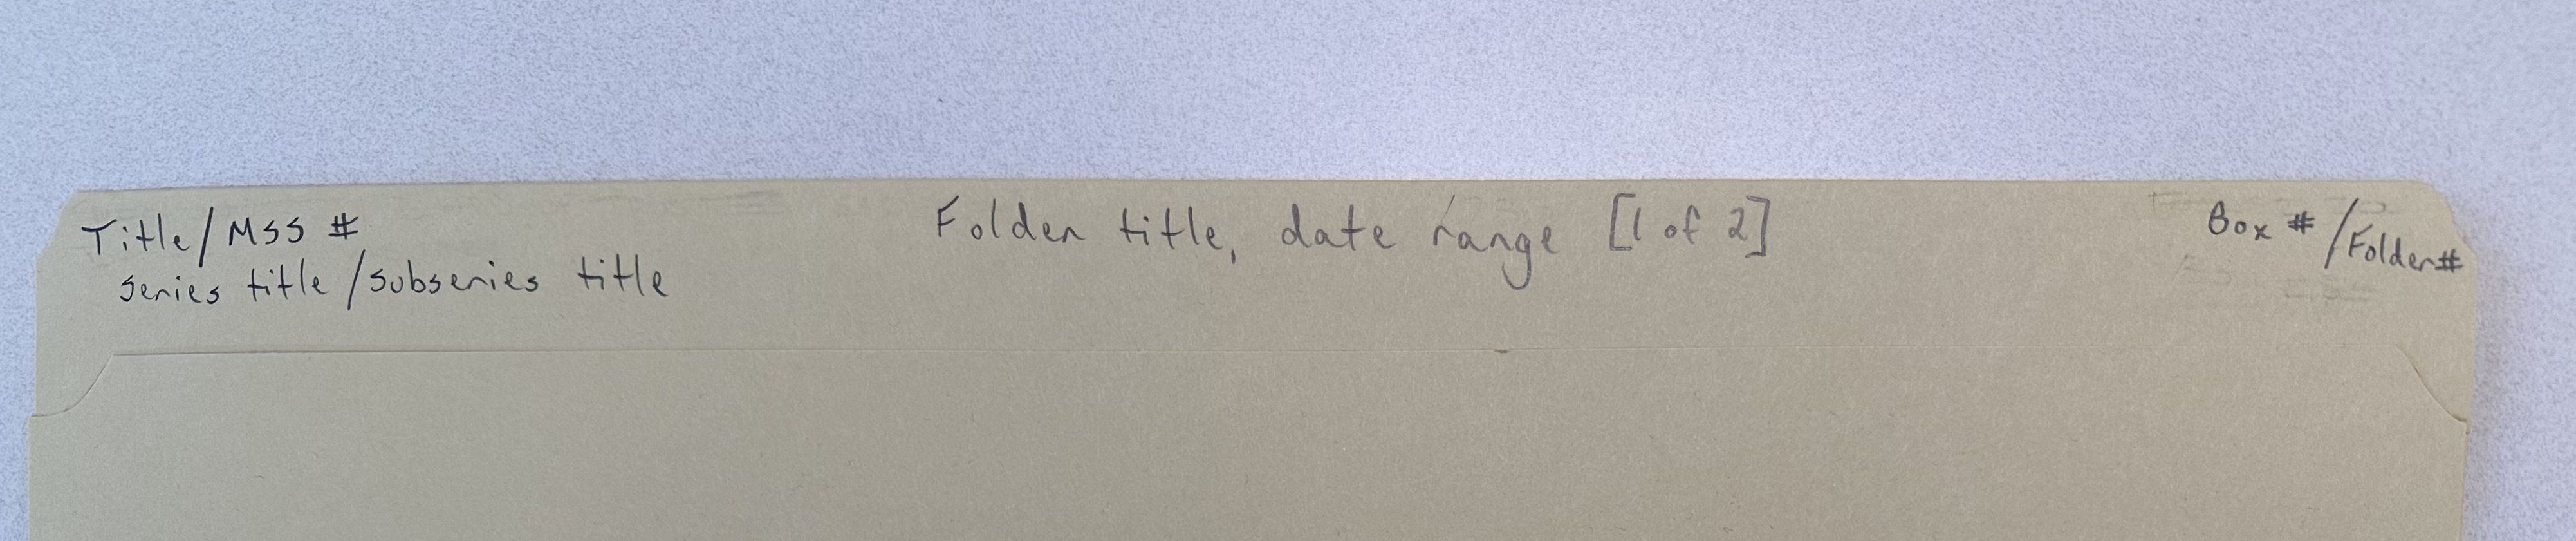 Title/Mss #
series title/subseries title
Folder title, date range [1 of 2]
Box #/Folder#